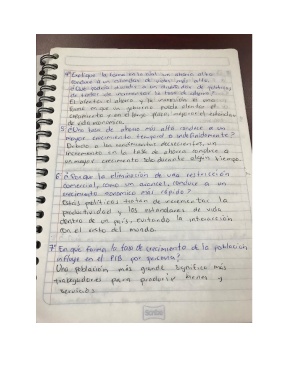 4. Explique la forma en la cual un ahorro alto
conduce a un estandar de vida más alto.
¿Qué podría disuadir a un diseñador de políticas
de tratar de incrementar la tasa de ahorro?
El aliento al ahorro y la inversión es una
forma en que un gobierno puede alentar el
crecimiento y en el largo plazo mejorar el estándar
de esta economía.
5. ¿Una tasa de ahorro más alta conduce a un
mayor crecimiento temporal o indefinidamente?
Debido a los rendimientos decrecientes, un
incremento en la tasa de ahorro conduce a
un mayor crecimiento solo durante algún tiempo.
6. ¿Porque la eliminación de una restricción
comercial, como un arancel, conduce a un
crecimiento economico mas rápido?
Estas políticas tratan de incrementar la
productividad y los estandares de vida
dentro de un país, evitando la interacción
con el resto del mundo.
7. En que forma la tasa de crecimiento de la población
influye en el PIB por persona?
Una población más grande significa más
trabajadores para producir bienes y
servicios.